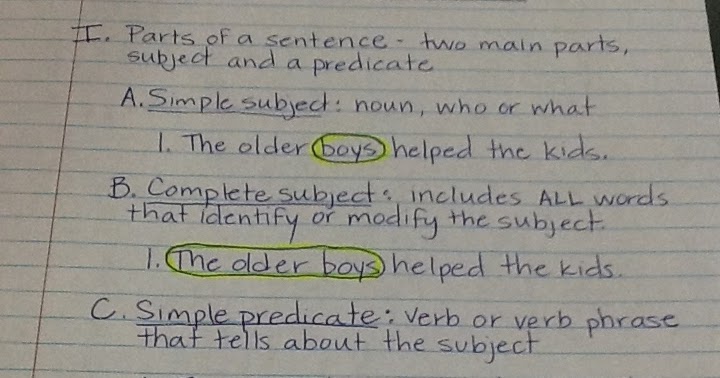 I. Parts of a sentence - two main parts,
subject and a predicate
A. Simple subject: noun, who or what
1. The older boys helped the kids.
B. Complete subject: includes ALL words
that identify or modify the subject.
1. The older boys helped the kids.
C. Simple predicate: verb or verb phrase
that tells about the subject